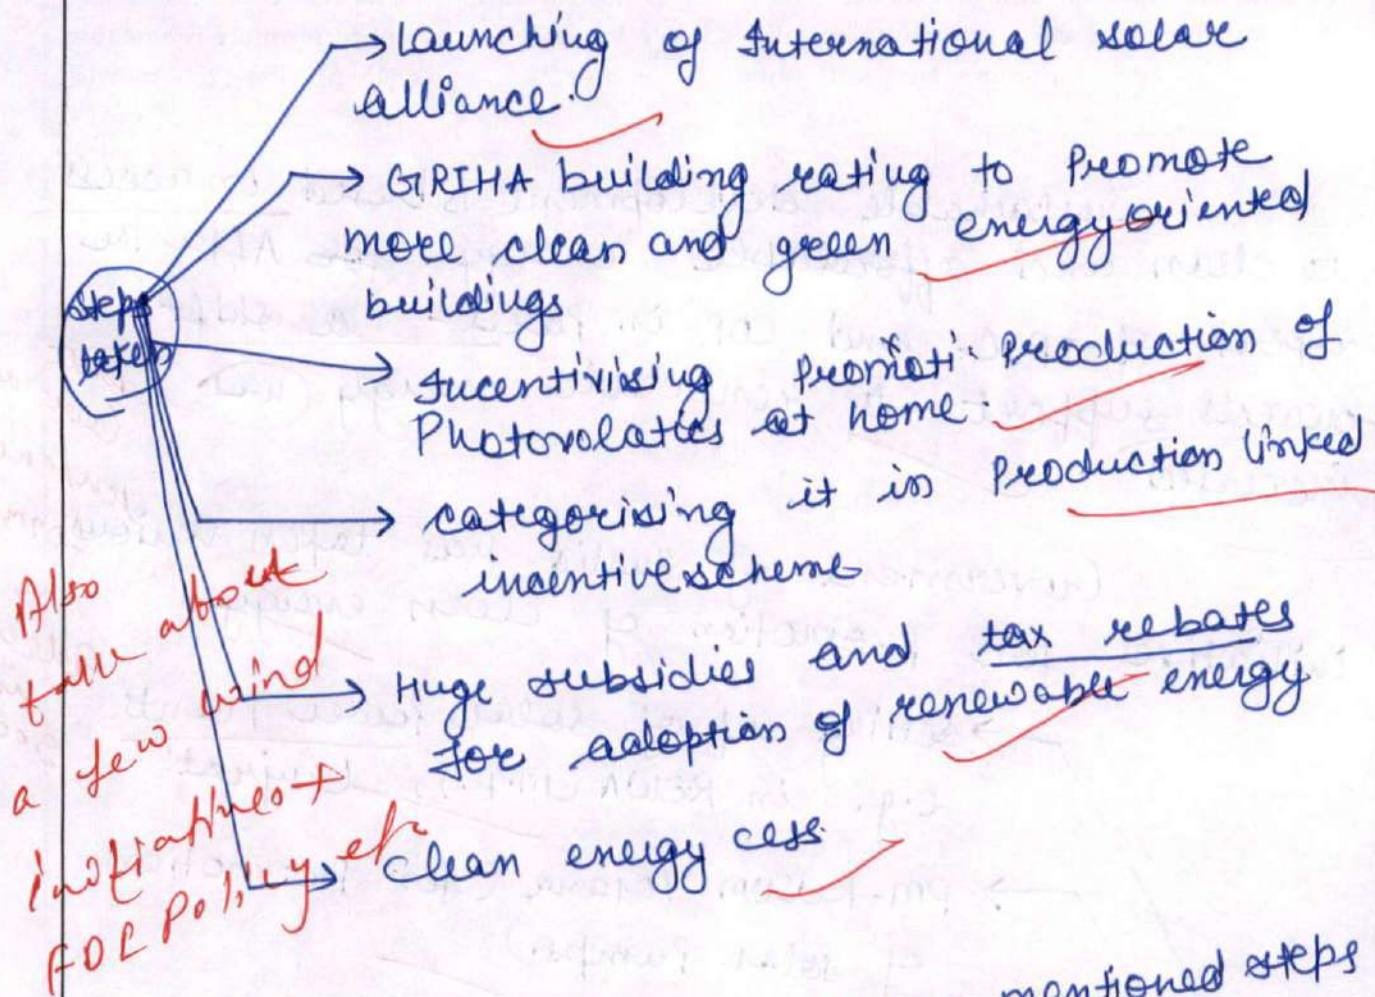 Launching of International solar
alliance.
GRIHA building rating to Promote
more clean and green energy oriented
buildings
steps
taken
Incentivising Promoti Production of
Photovolatics at home.
categorising it in Production linked
incentive scheme
Huge subsidies and tax rebates
for adoption of renewable energy
clean energy cess
Also
talk about
a few wind
initiatives +
policy etc
mentioned steps